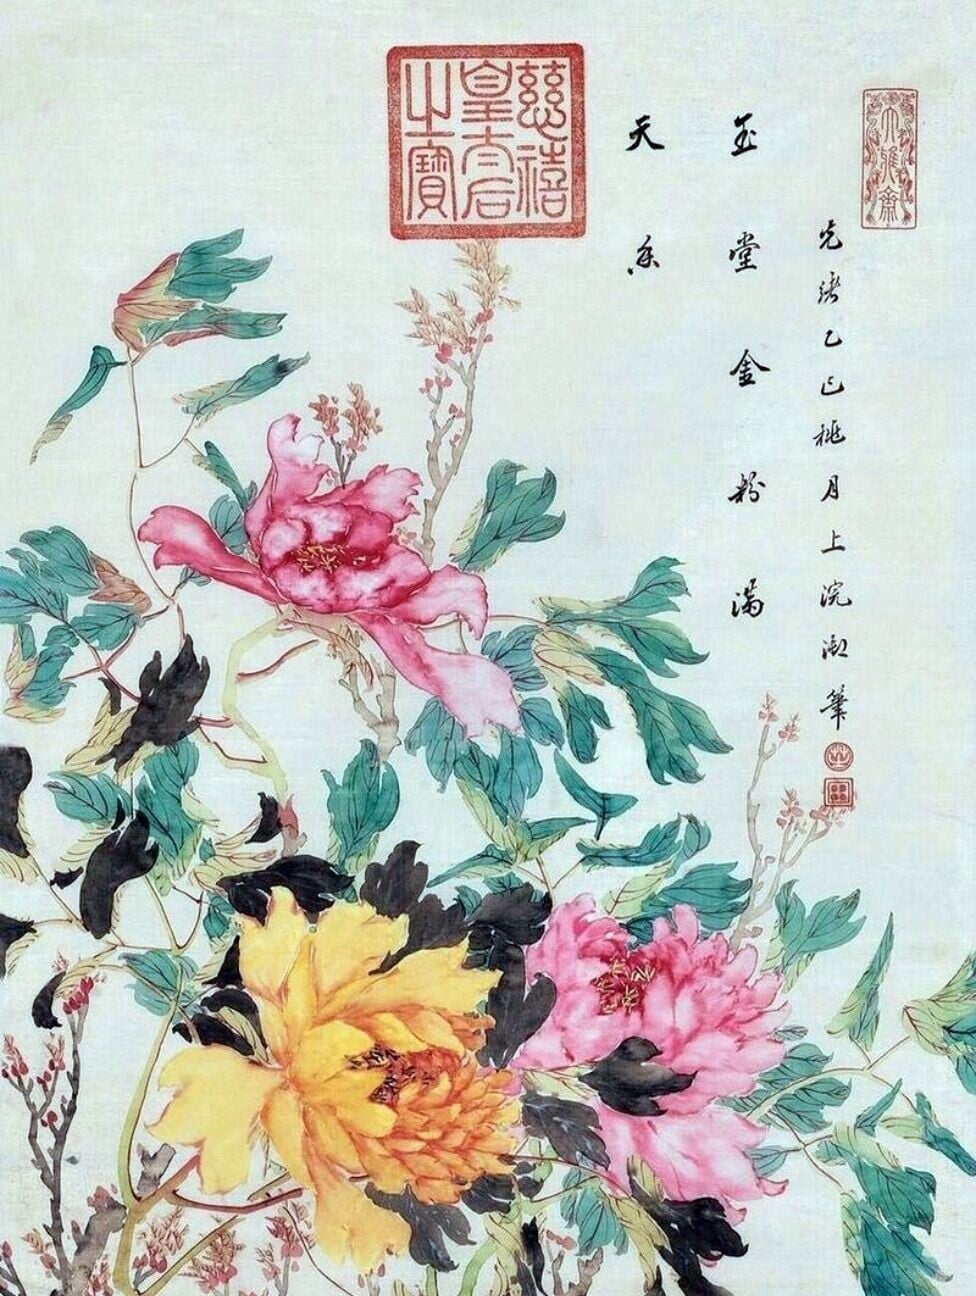 大雅齋
光緒乙巳桃月上浣御筆
玉堂金粉滿
天香
慈禧
皇太后
之寶